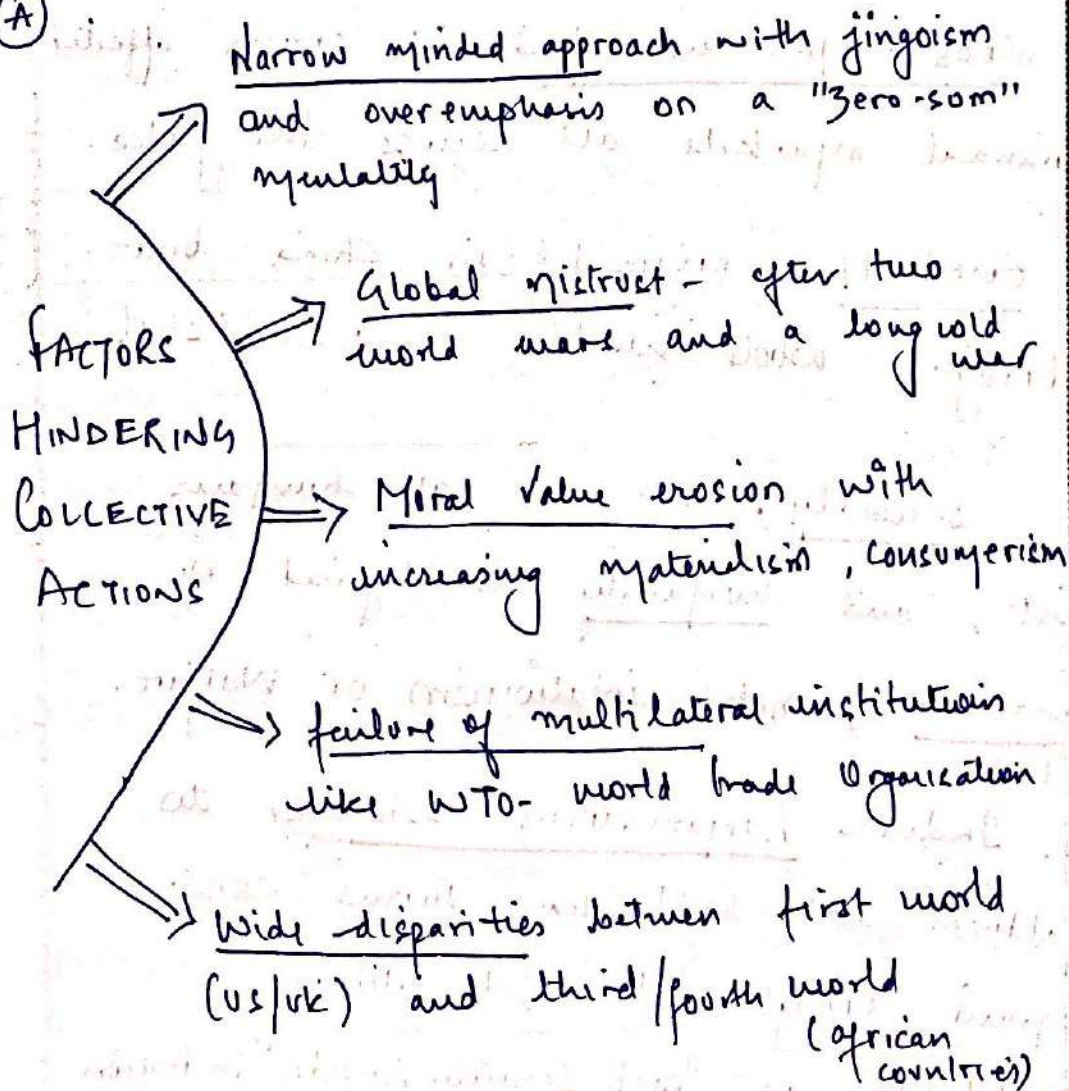 A
Narrow minded approach with jingoism
and overemphasis on a "zero-som"
mentality
Global mistrust - after two
world wars and a long cold
war
FACTORS
HINDERING
COLLECTIVE
ACTIONS
Moral Value erosion with
increasing materialism, consumerism
failure of multilateral institutions
like WTO- world trade Organisation
Wide disparities between first world
(US/UK) and third/fourth world
(african
countries)